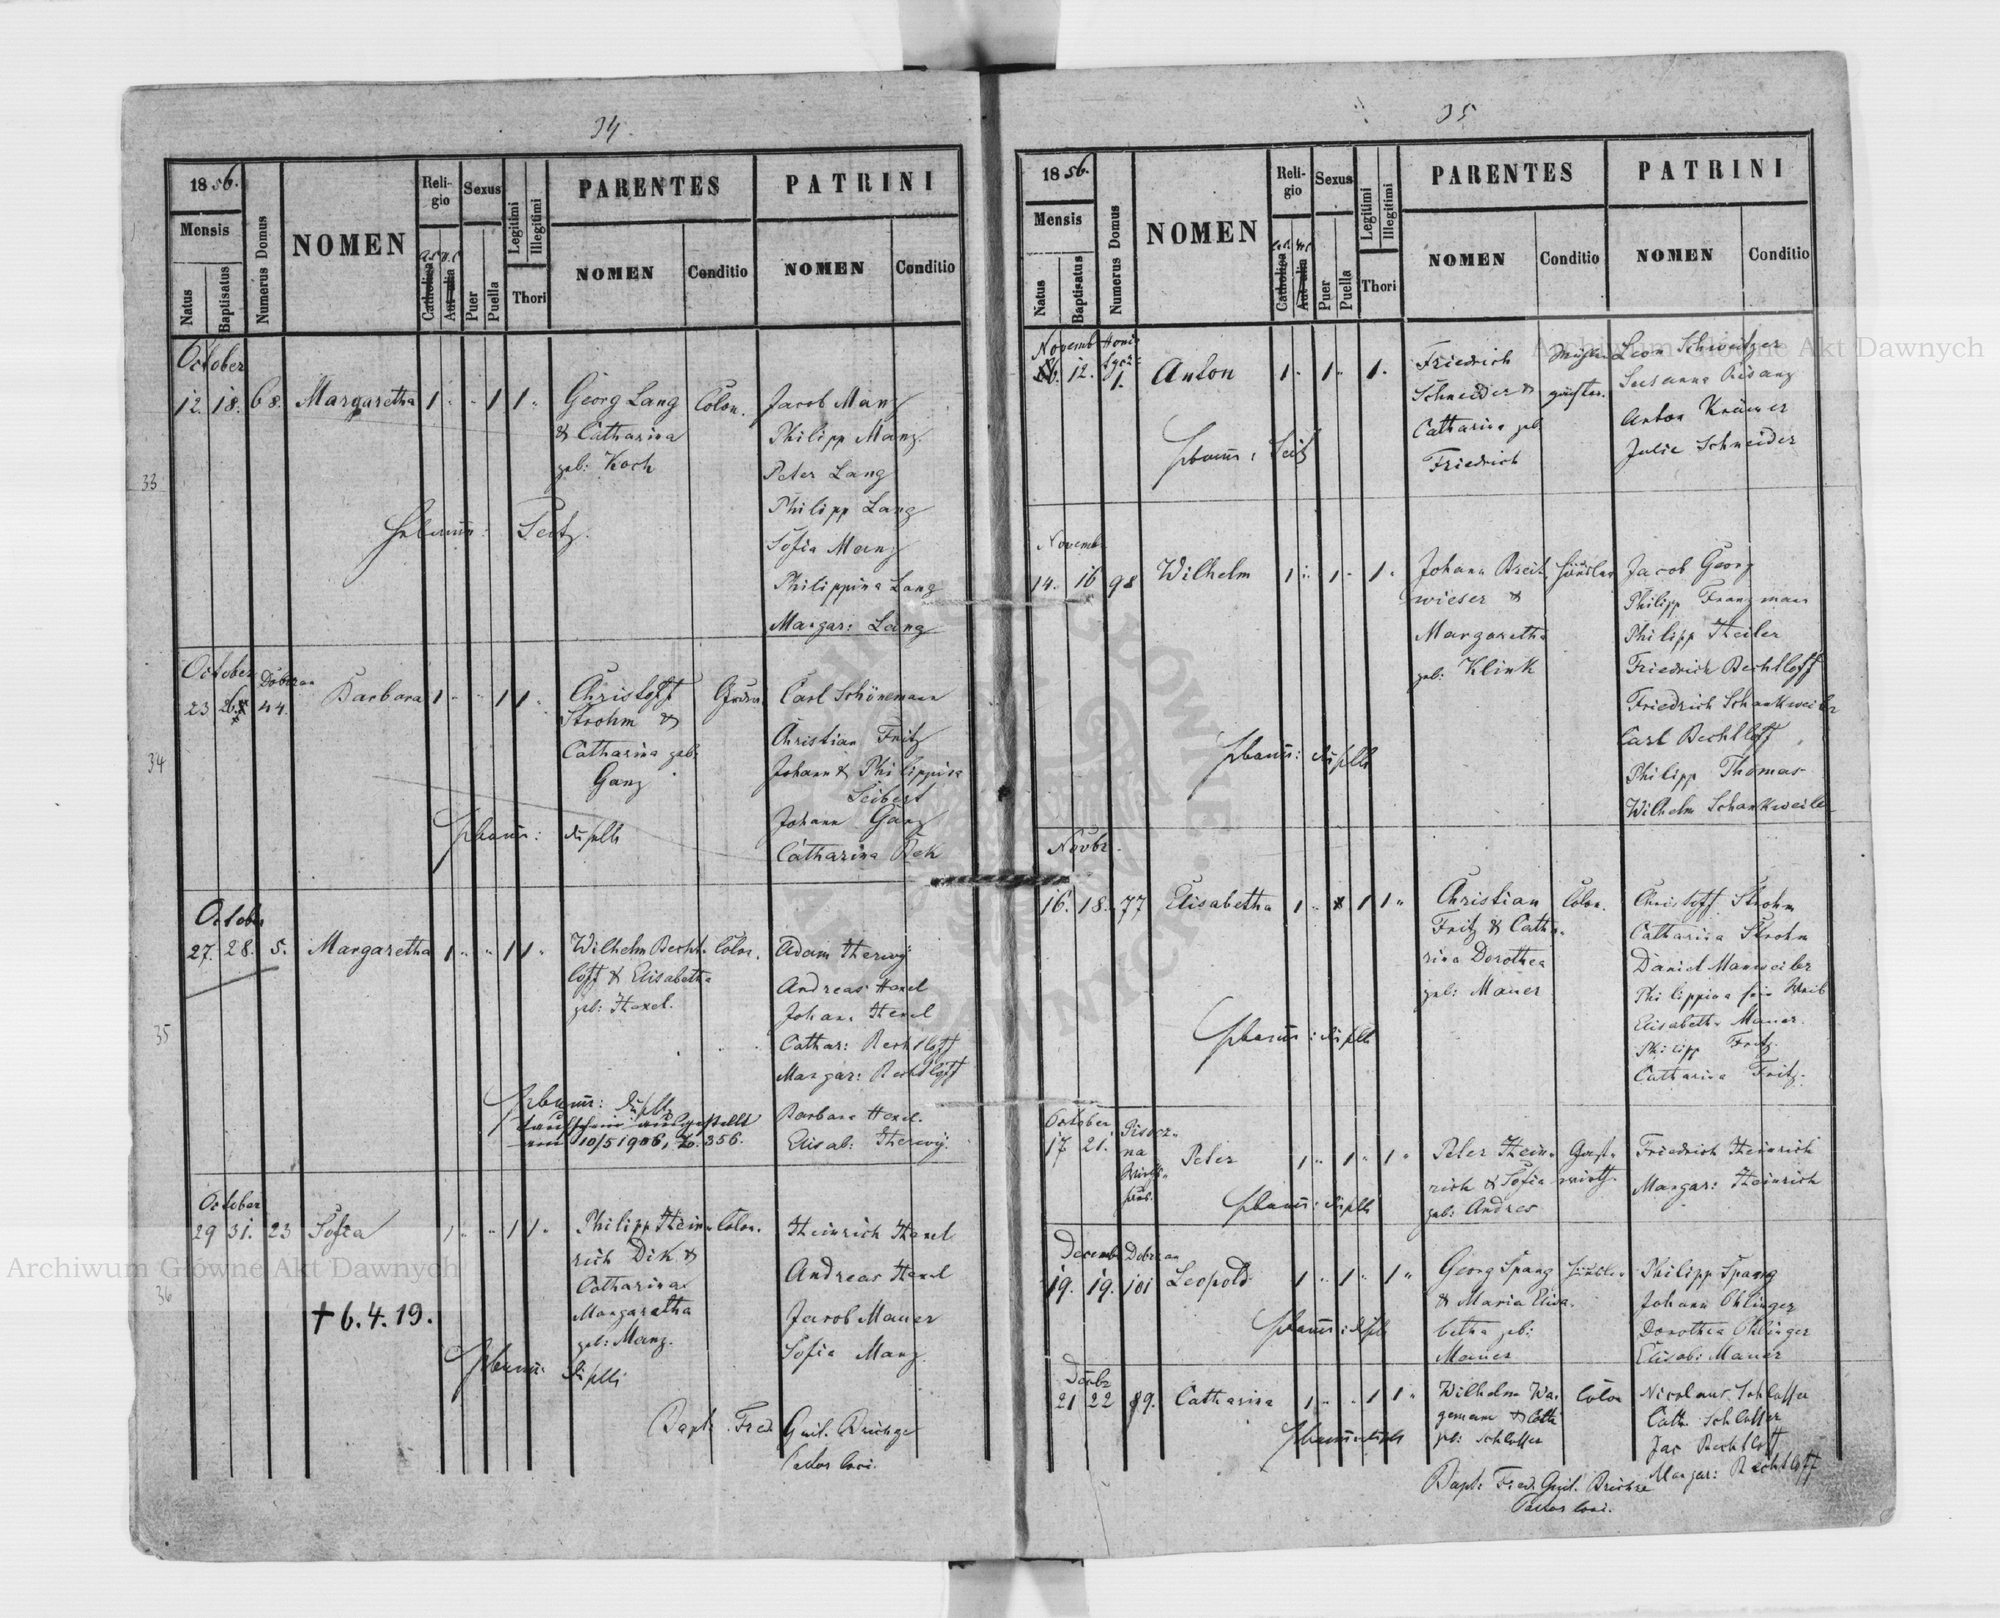 34.
1856.
Mensis
Natus
Baptisatus
Numerus Domus
NOMEN
Religio
Catholica
Aut alia
Sexus
Puer
Puella
Legitimi
Illegitimi
Thori
PARENTES
NOMEN
Conditio
PATRINI
NOMEN
Conditio
October
12. 18. 68. Margaretha 1 " " 1 1 "
Georg Lang
& Catharina
geb: Koch
Colon.
Jacob Manz
Philipp Manz
Peter Lang
Philipp Lang
Sofia Manz
Philippina Lang
Margar: Lang
33
October
Dobrzan
23 26. 44. Barbara 1 " " 1 1 "
Christoff
Strohm &
Catharina geb:
Ganz
Carl Schönemann
Christian Fritz
Johann & Philippina
Seibert
Johann Ganz
Catharina Bek
34
October
27. 28. 5. Margaretha 1 " " 1 1 "
Wilhelm Becht-
loff & Elisabetha
geb: Hexel.
Colon.
Adam
Andreas Hexel
Johann Hexel
Cathar: Bechtloff
Margar: Bechtloff
Barbara Hexel
Elisab:
Taufschein ausgestellt
am 10/5 1906, Z. 356.
35
October
29 31. 23 Sofia 1 " " 1 1 "
Philipp Hein-
rich Dik &
Catharina
Margaretha
geb: Manz.
Colon.
Heinrich Hexel
Andreas Hexel
Jacob Mauer
Sofia Manz
36
† 6. 4. 19.
Bapt: Fred. Guil.
Pastor loci.
35
1856.
Mensis
Natus
Baptisatus
Numerus Domus
NOMEN
Religio
Catholica
Aut alia
Sexus
Puer
Puella
Legitimi
Illegitimi
Thori
PARENTES
NOMEN
Conditio
PATRINI
NOMEN
Conditio
Novemb
12. 1. Anton 1 " 1 " 1 "
Friedrich
Schneider &
Catharina geb
Friedrich
Leon Schweitzer
Susanna
Anton Krämer
Julie Schneider
Novemb
14. 16 98 Wilhelm 1 " 1 " 1 "
Johann Breit-
wieser &
Margaretha
geb: Klink
Häusler
Jacob Georg
Philipp Franzmann
Philipp Heiler
Friedrich Bechtloff
Friedrich Schankweiler
Carl Bechtloff
Philipp Thomas
Wilhelm Schankweiler
Novbr.
16. 18. 77 Elisabetha 1 " 1 1 "
Christian
Fritz & Catha-
rina Dorothea
geb: Mauer
Colon.
Christoff Strohm
Catharina Strohm
Daniel Manweiler
Philippina sein Weib
Elisabeth Mauer
Philipp Fritz
Catharina Fritz
October
17 21. Peter 1 " 1 " 1 "
Peter Hein-
rich & Sofia
geb: Andres
Gast-
wirth.
Friedrich Heinrich
Margar: Heinrich
Decemb Dobrzan
19. 19. 101 Leopold 1 " 1 " 1 "
Georg Spang
& Maria Elisa-
betha geb:
Mauer
Häusler
Philipp Spang
Johann Ohlinger
Dorothea Ohlinger
Elisab: Mauer
Decbr
21 22 89. Catharina 1 " " 1 1 "
Wilhelm Wa-
gemann & Cath
geb: Schlosser
Colon
Nicolaus Schlosser
Cath. Schlosser
Jac Bechtloff
Margar: Bechtloff
Bapt: Fred. Guil.
Pastor loci.
Archiwum Główne Akt Dawnych
Archiwum Główne Akt Dawnych